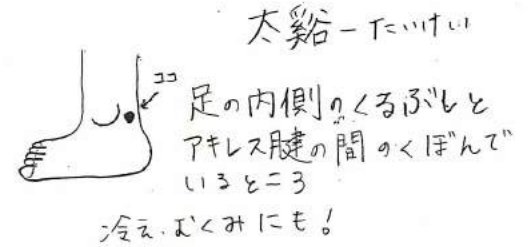 太谿-たいけい
ココ
足の内側のくるぶしと
アキレス腱の間のくぼんで
いるところ
冷え.むくみにも!